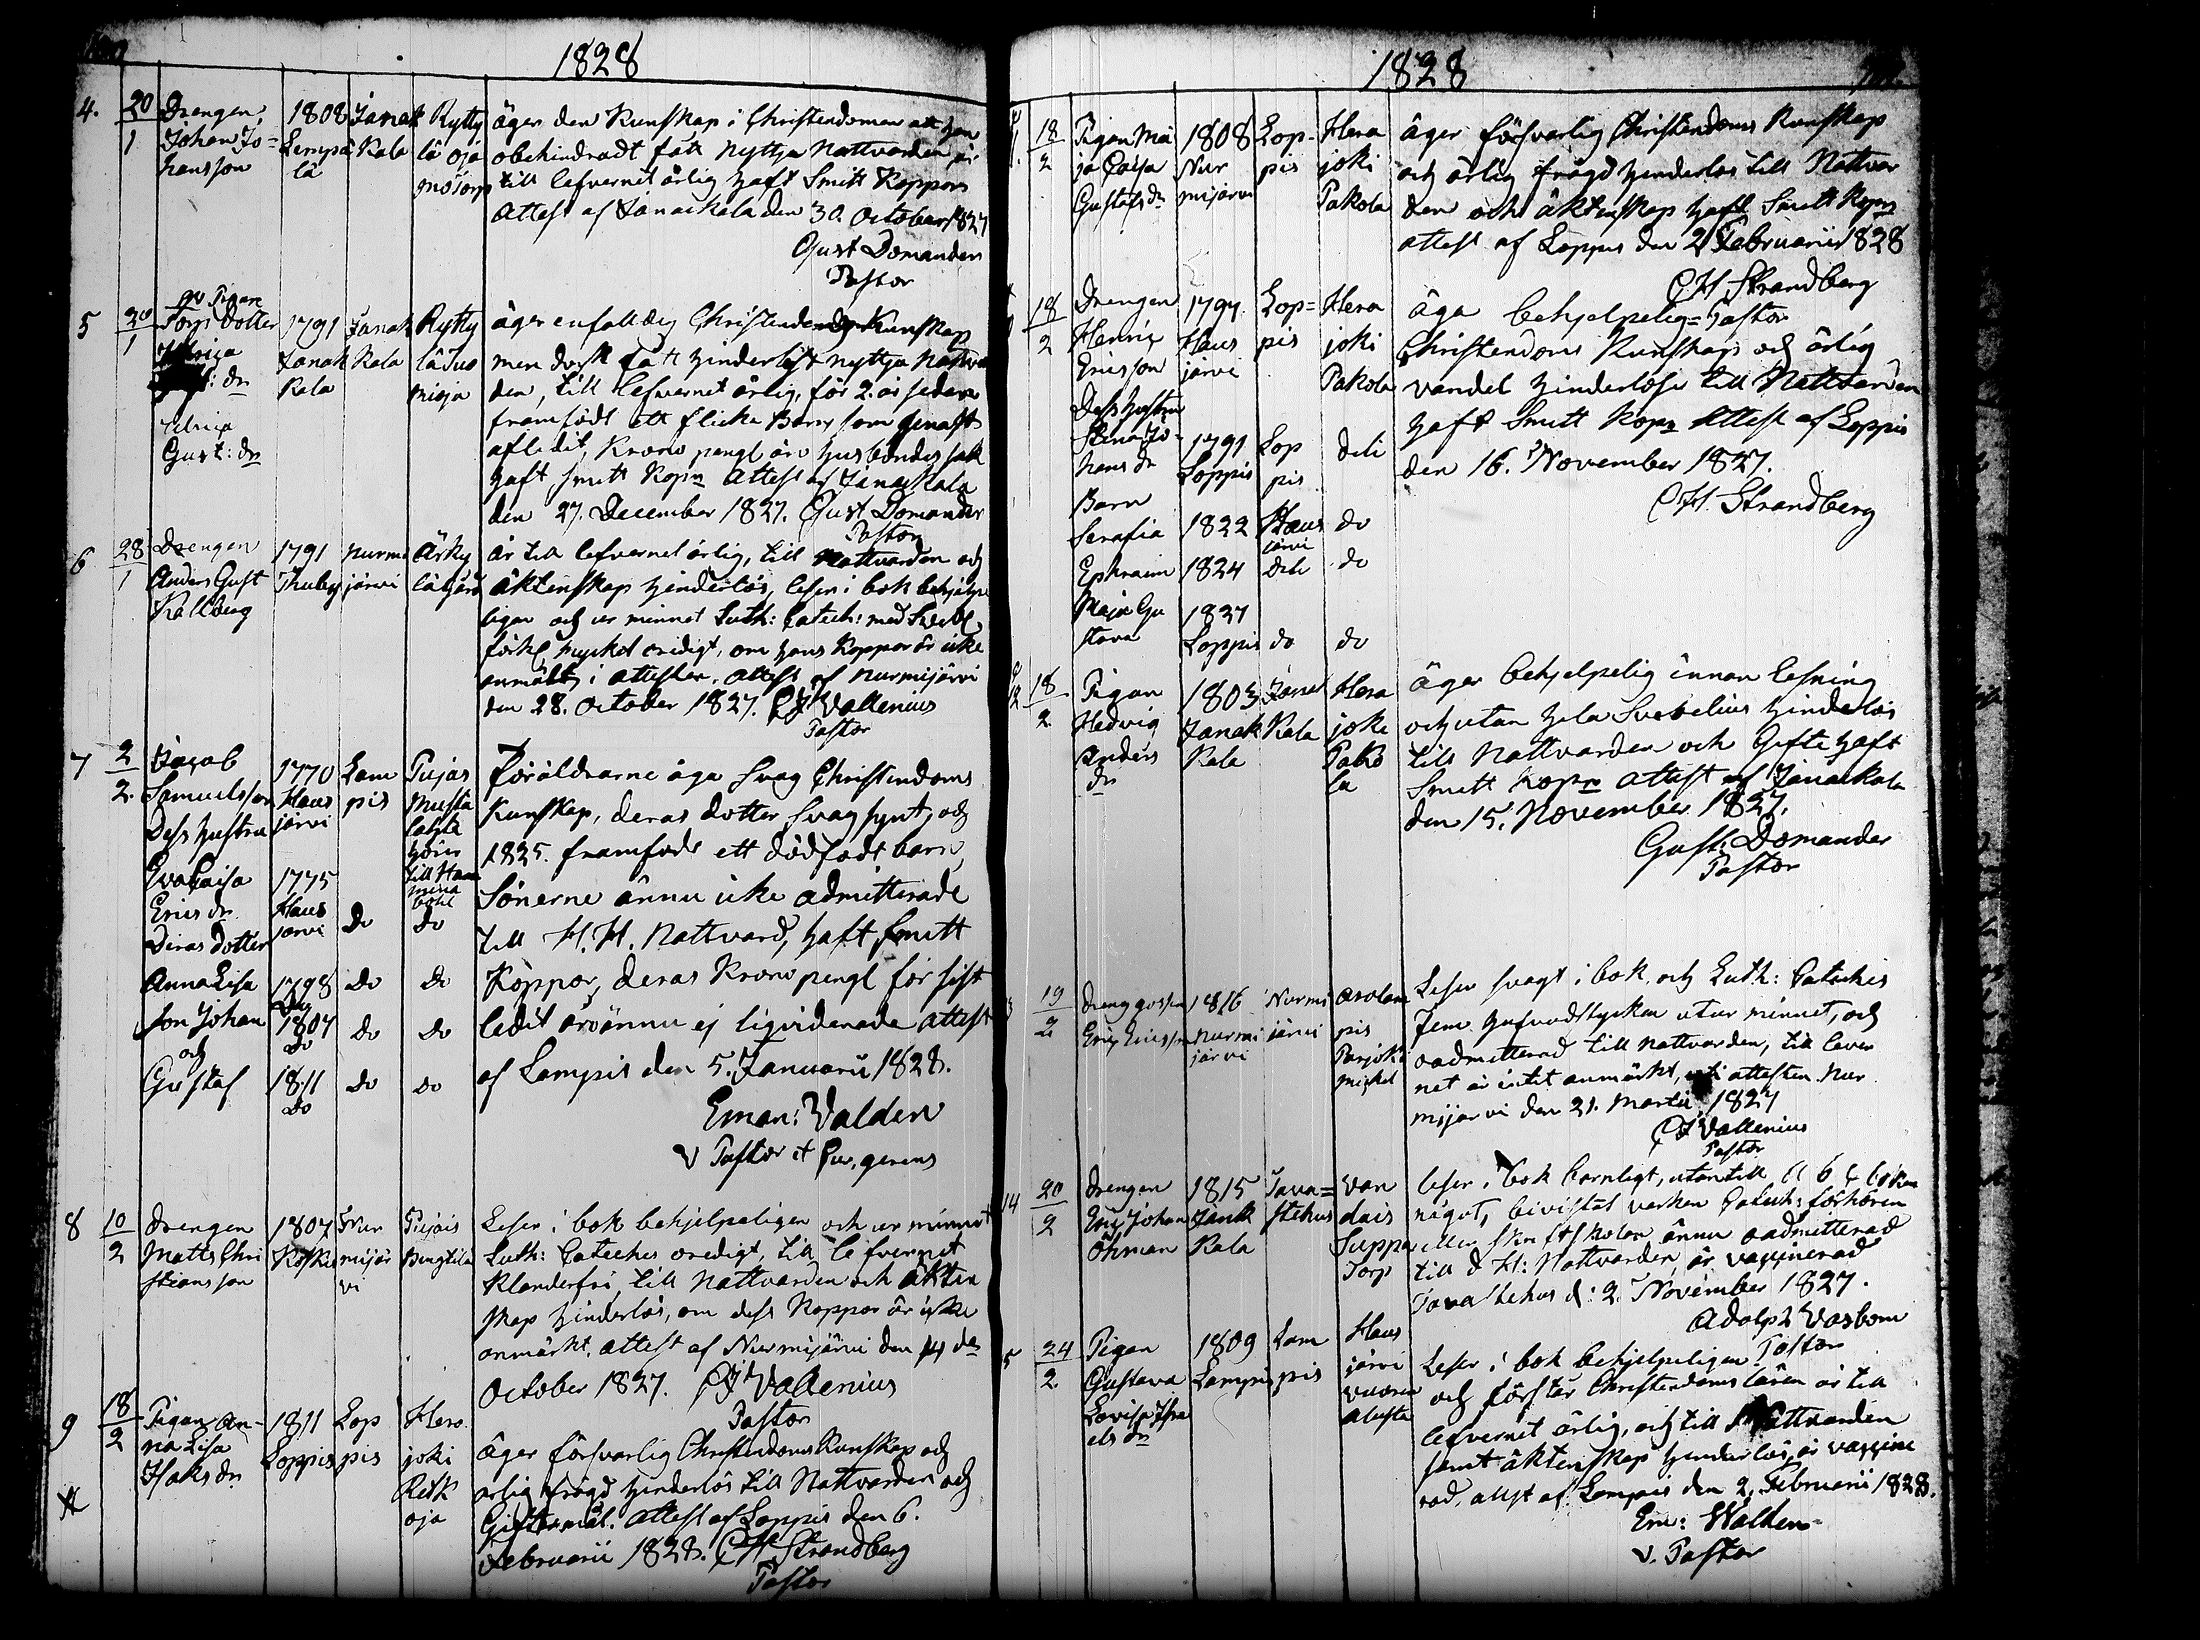 1828
4. 20/1 Drengen Johan Johansson 1808 Lempälä Janakkala Ryttylä Oja
äger den Kunskap i Christendomen att han
obehindradt fått nyttja Nattvarden är
till lefvernet ärlig haft Smitt Koppor
Attest af Janackala den 30. October 1827
Gust Domander
Pastor
5 20/1 Torp Dotter Ulrica Gust: dr 1791 Janakkala Janakkala Ryttylä
äger enfalldig Christendoms Kunskap
men dock fått hinderlöst nyttja Nattvar
den, till lefvernet ärlig, för 2. år sedan
framfödt ett flicke Barn som genast
afledit, Krono pengl äro husbondes sak
haft Smitt Kopr Attest af Janackala
den 27. December 1827. Gust Domander
Pastor
6 28/1 Drengen Anders Gust Kallberg 1791 Thusby Nurmijärvi
är till lefvernet ärlig, till Nattvarden och
äktenskap hinderlös, leser i bok behjelpe
ligen och ur minnet Luth: Catech: med Svebl
förkl mycket oredigt, om hans Koppor är icke
anmält i attesten. Attest af Nurmijärvi
den 28. October 1827. Vallenius
Pastor
7 2/2 Jacob Samuelsson 1770 Hausjärvi Lampis
Dess hustru Eva Caisa Erics dr 1775 Hausjärvi Do Do
Deras Dotter Anna Lisa 1798 Do Do Do
Son Johan 1807 Do Do Do
och Gustaf 1811 Do Do Do
Föräldrarne äga svag Christendoms
Kunskap, deras dotter svag synt, och
1825. framfödt ett dödfödt barn,
Sönerne ännu icke admitterade
till H. H. Nattvard, haft Smitt
Koppor, deras Krono pengl för sist
ledit år ännu ej liqviderade Attest
af Lampis den 5. Januarii 1828.
Eman: Valden
V Pastor et Cur. gerens
8 10/2 Drengen Matts Christiansson 1807 Koskis Nurmijärvi
Leser i bok behjelpeligen och ur minnet
Luth: Cateches oredigt, till lefvernet
Klanderfri, till Nattvarden och äkten
skap hinderlös, om dess Koppor är icke
anmärkt. Attest af Nurmijärvi den 14 de
October 1827. Vallenius
Pastor
9 18/2 Pigan Anna Lisa Isaks dr 1811 Loppis Loppis Herajoki
äger försvarlig Christendoms Kunskap och
ärlig frägd hinderlös till Nattvarden och
Giftermål. Attest af Loppis den 6.
Februarii 1828. CH Strandberg
Pastor
1828
18/2 Pigan Maja Caisa Gustafs dr 1808 Nurmijärvi Loppis Herajoki Pakola
äger försvarlig Christendoms Kunskap
och ärlig frägd hinderlös till Nattvar
den och äktenskap haft Smitt Kopr
attest af Loppis den 2 Februarii 1828
CH Strandberg
Pastor
18/2 Drengen Henric Ericsson 1797 Hausjärvi Loppis Herajoki Pakola
Dess hustru Stina Johans dr 1791 Loppis Loppis
Barn Serafia 1822 Hausjärvi do
Ephraim 1824 do
Maja Gustava 1827 Loppis do do
äga behjelpelig
Christendoms Kunskap och ärlig
vandel hinderlöse till Nattvarden
haft Smitt Kopr Attest af Loppis
den 16. November 1827.
CH. Strandberg
12 18/2 Pigan Hedvig Anders dr 1803 Janakkala Janakkala Herajoki Pakola
äger behjelpelig innan lesning
och utan hela Svebelius hinderlös
till Nattvarden och Gifte haft
Smitt Kopr attest af Janackala
den 15. November 1827.
Gust: Domander
Pastor
19/2 Drenggossen Eric Ericsson 1816 Nurmijärvi Nurmijärvi
Leser svagt i bok och Luth: Cateches
fem hufvudstycken utur minnet, och
oadmitterad till Nattvarden, till lever
net är intet anmärkt, i attesten. Nur
mijärvi den 21. Martii 1827
Vallenius
Pastor
14 20/2 Drengen Eric Johan Öhman 1815 Janakkala Tavastehus Torp
leser i bok barnligt, utantill A b c boken
något, bivistat varken Catech: förhören
eller skriftskolan ännu oadmitterad
till d H: Nattvarden, är vaccinerad
Tavastehus d: 2. November 1827.
Adolph Vasbom
Pastor
24/2 Pigan Gustava Lovisa Israels dr 1809 Lampis Lampis Hausjärvi
Leser i bok behjelpeligen
och förstår Christendoms läran är till
lefvernet ärlig, och till Nattvarden
samt äktenskap hinderlös, är vaccine
rad, attest af Lampis den 2. Februarii 1828.
Em: Walden
V. Pastor